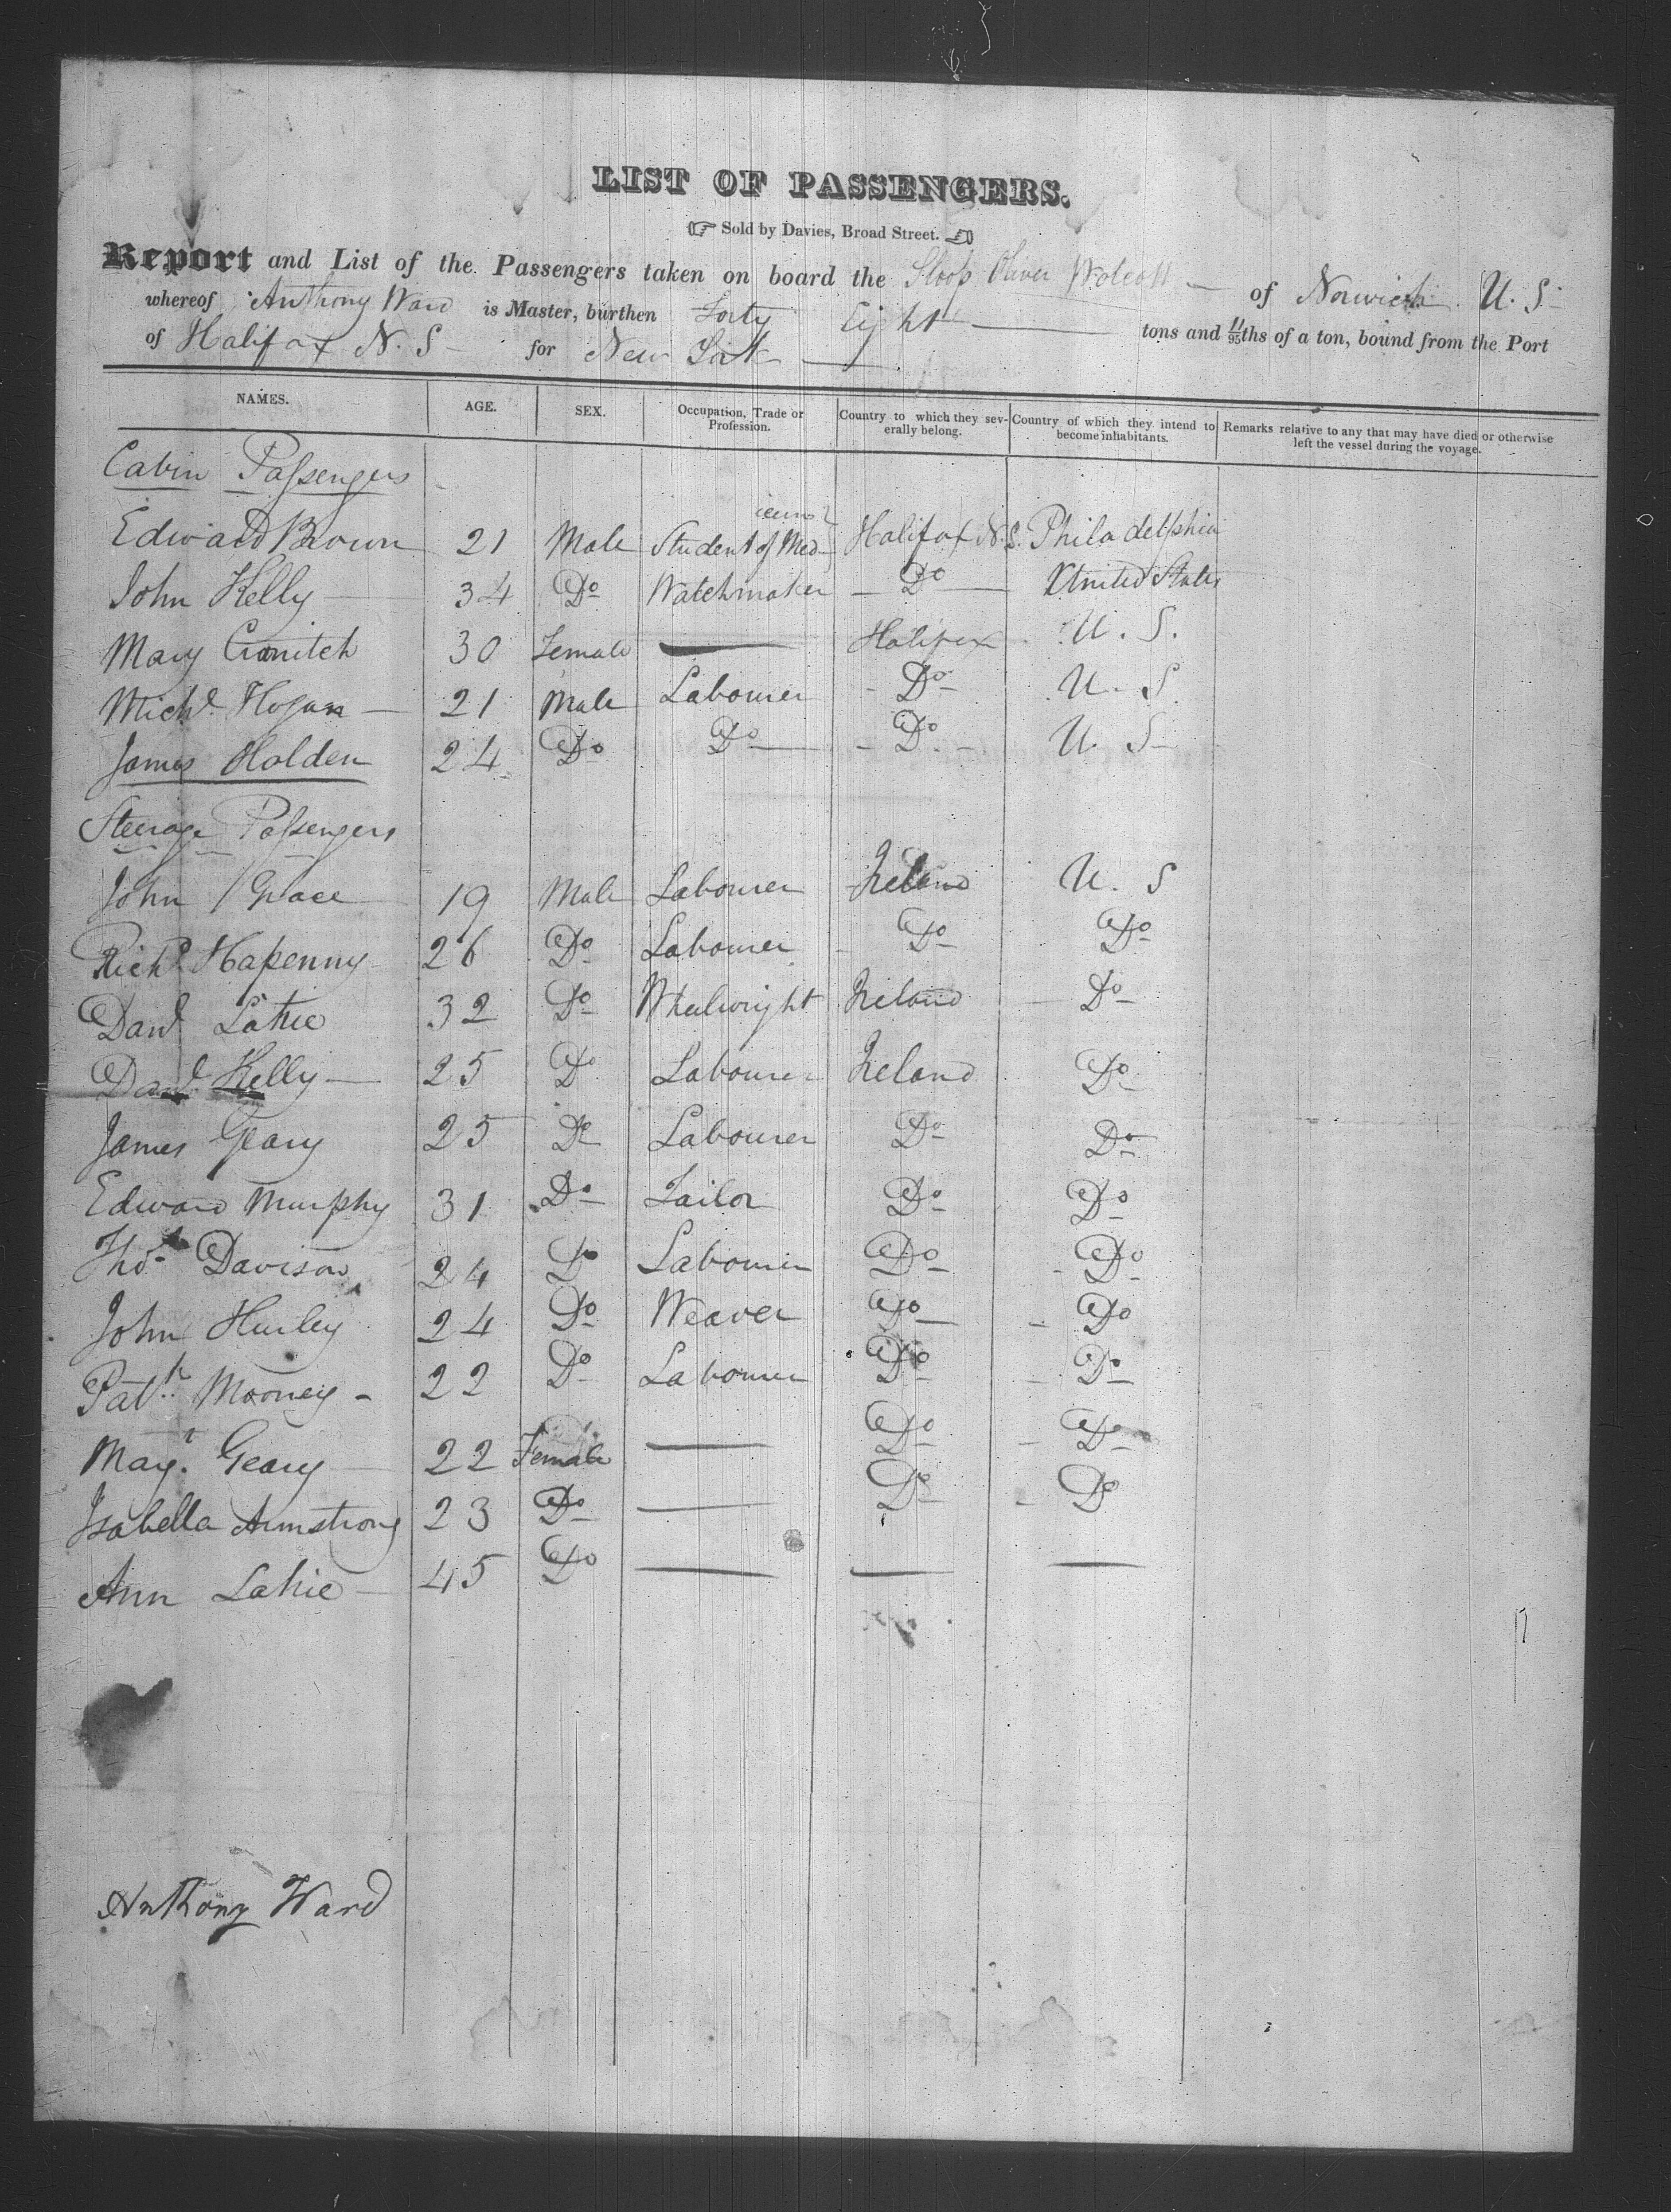 LIST OF PASSENGERS.
Sold by Davies, Broad Street.
Report and List of the Passengers taken on board the Sloop Oliver Wolcott — of Norwich U. S.
whereof Anthony Ward is Master, burthen Forty Eight — tons and 11/95ths of a ton, bound from the Port
of Halifax N. S — for New York —
NAMES. AGE. SEX. Occupation, Trade or Profession. Country to which they severally belong. Country of which they intend to become inhabitants. Remarks relative to any that may have died or otherwise left the vessel during the voyage.
Cabin Passengers
Edward Brown 21 Male Student of Med- Halifax N.S. Philadelphia
John Kelly — 34 Do Watchmaker — Do — United States
Mary 30 Female — Halifax U. S.
Michl. Hogan — 21 Male Labourer - Do - U. S
James Holden 24 Do Do — - Do. - U. S -
Steerage Passengers
John Grace 19 Male Labourer Ireland U. S
Richd Hapenny 26 Do Labourer - Do Do
Danl Lahie 32 Do Wheelwright Ireland - Do
Danl. Kelly — 25 Do Labourer Ireland Do
James Geary 25 Do Labourer Do Do
Edward Murphy 31 Do Tailor Do Do
Thos. Davison 24 Do Labourer Do - Do
John Hurley 24 Do Weaver Do - Do
Patk. Mooney - 22 Do Labourer Do - Do
Mary. Geary — 22 Female — Do - Do
Isabella Armstrong 23 Do — Do - Do
Ann Lahie — 45 Do — — —
Anthony Ward